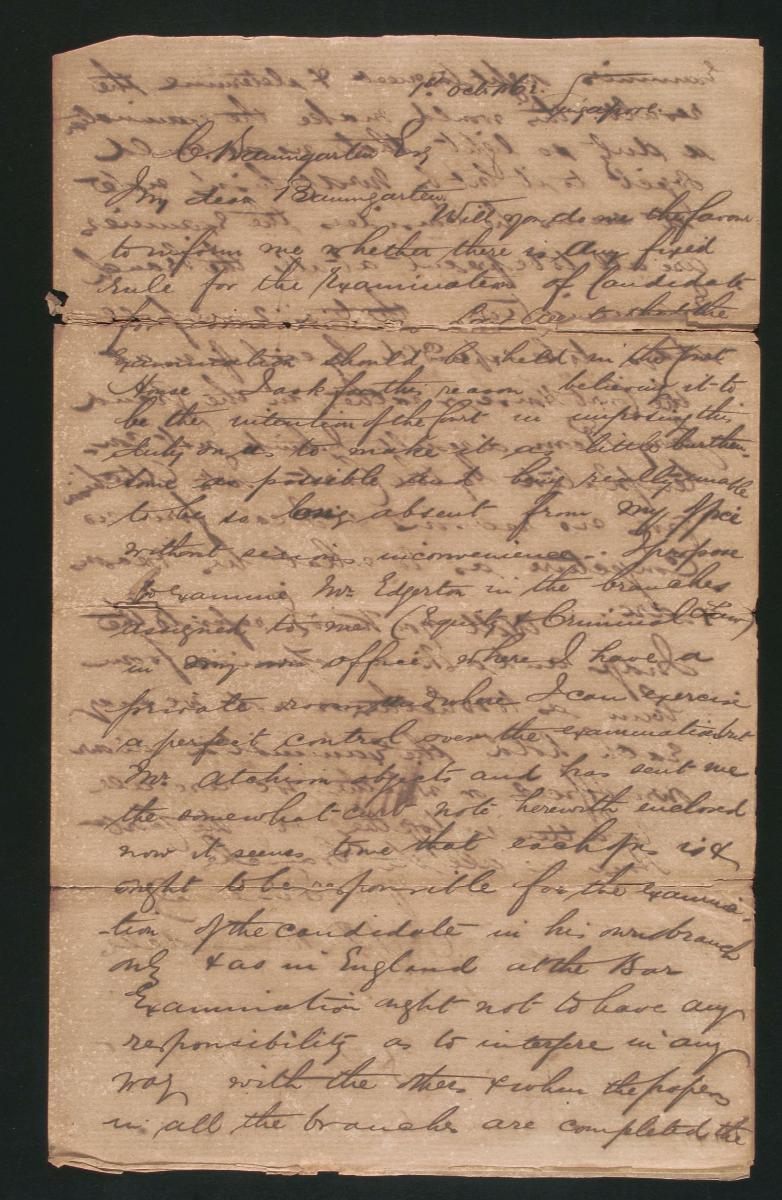 1st Oct
Singapore
C. Baumgarten Esq
My dear Baumgarten,
Will you do me the favour
to inform me whether there is any fixed
rule for the Examination of Candidate
for that the
Examination should be held in the Court
House I ask for this reason believing it to
be the intention of the Court in imposing this
duty on us to make it as little burthen-
some as possible and being really unable
to be so long absent from my office
without serious inconvenience. I propose
to examine Mr. Edgerton in the branches
assigned to me (Equity & Criminal Law)
in my own office where I have a
private room and where I can exercise
a perfect control over the examination but
Mr. Atchison objects and has sent me
the somewhat curt note herewith enclosed
now it seems to me that each of us is &
ought to be responsible for the examina-
-tion of the candidate in his own branch
only & as in England at the Bar
Examination ought not to have any
responsibility as to interfere in any
way with the others & when the papers
in all the branches are completed the